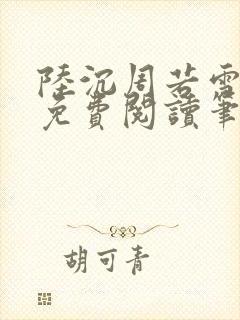 陸沉周若雪
免費閱讀筆
胡可青